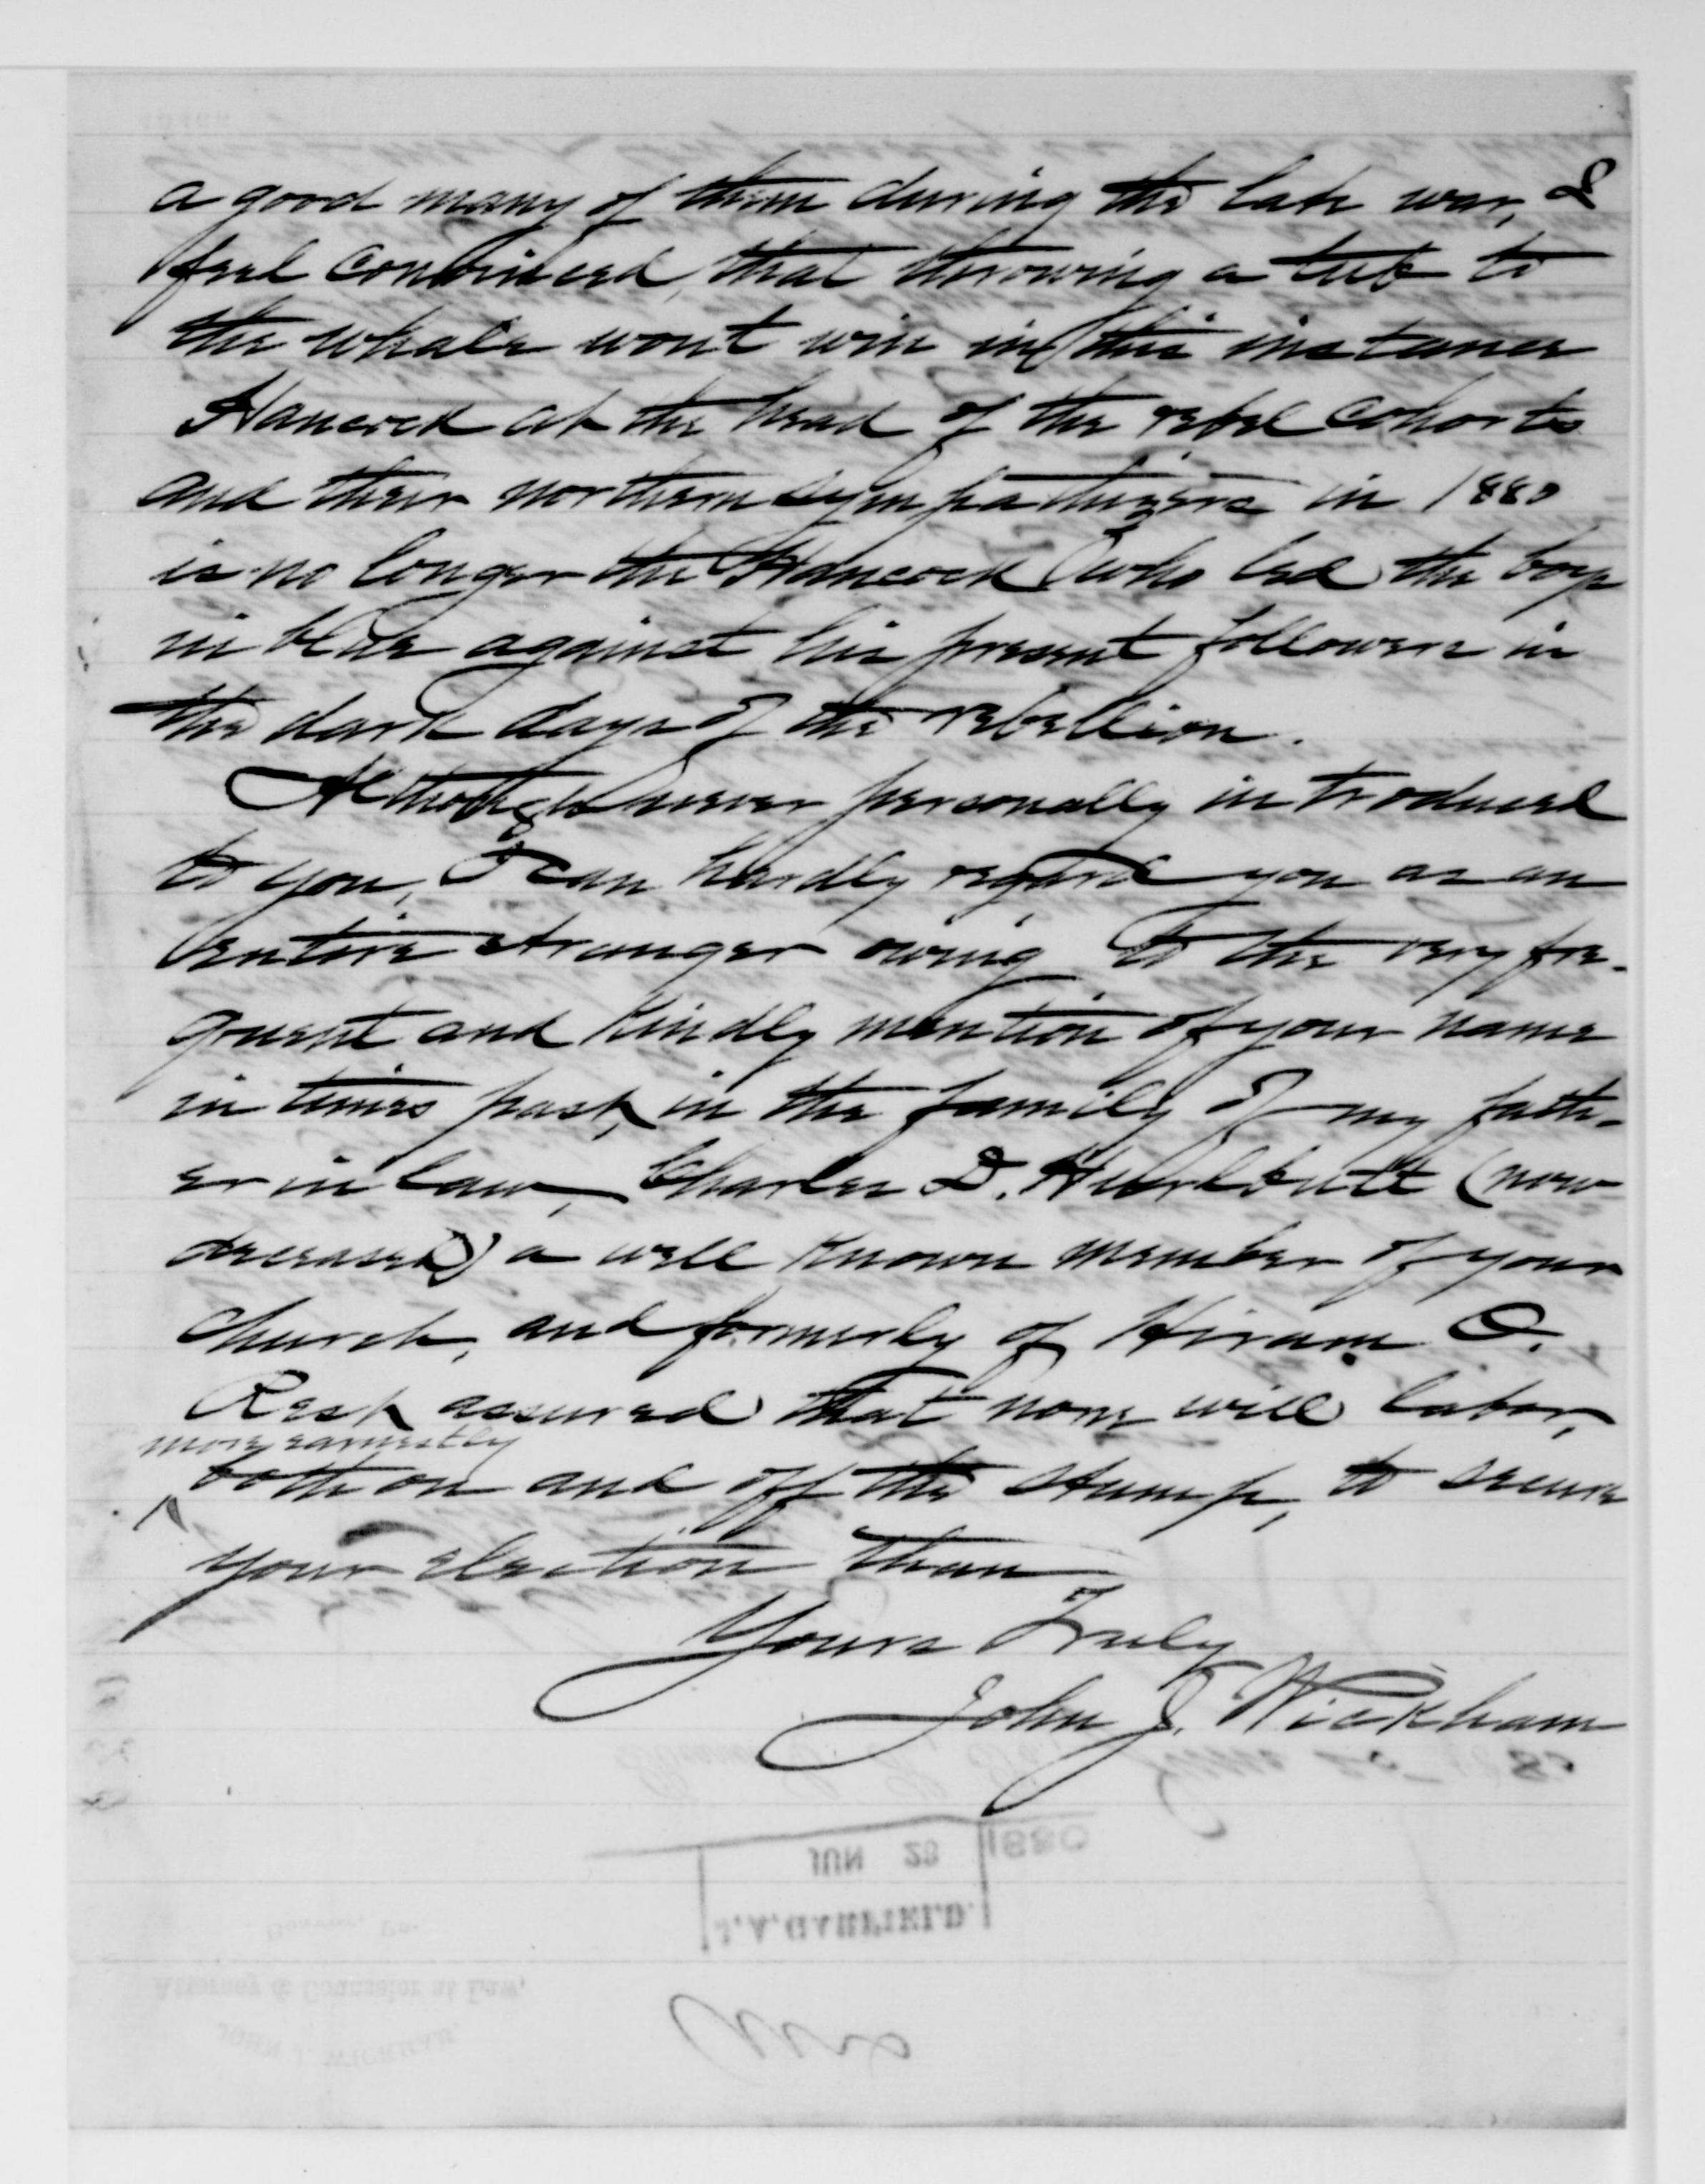 a good many of them during the late war, I
feel convinced, that throwing a tub to
the whale wont win in this instance
Hancock at the head of the rebel cohorts
and their northern sympathizers in 1880
is no longer the Hancock who led the boys
in blue against his present followers in
the dark days of the rebellion.
Although never personally introduced
to you, I can hardly regard you as an
entire stranger owing to the very fre-
quent and kindly mention of your name
in times past, in the family of my fath-
er in law, Charles D. Hurlbutt (now
deceased) a well known member of your
church, and formerly of Hiram O.
Rest assured that none will labor,
more earnestly
both on and off the stump, to secure
your election than
Yours Truly
John J. Wickham
JUN 28 1880
J. A. GARFIELD.
Beaver, Pa.
Attorney & Counselor at Law,
JOHN J. WICKHAM